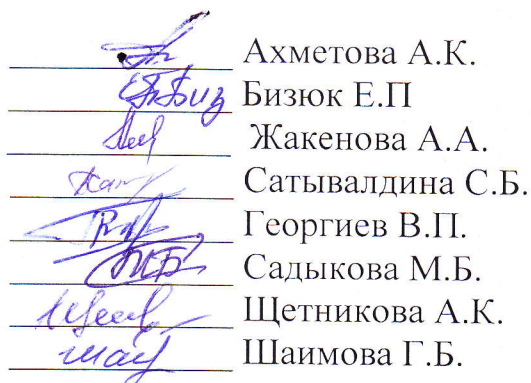 Ахметова А.К.
Бизюк Е.П
Жакенова А.А.
Сатывалдина С.Б.
Георгиев В.П.
Садыкова М.Б.
Щетникова А.К.
Шаимова Г.Б.